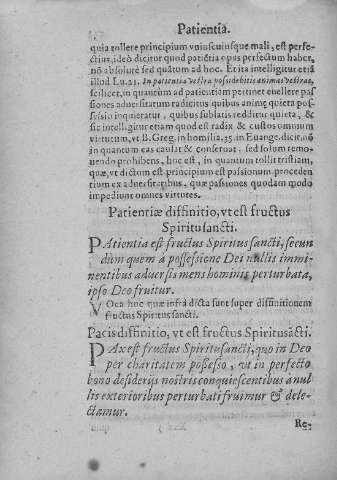 Patientiâ.
quia tollere principium vniuscuiusque mali, est perfe-
ctius, ideò dicitur quod patiētia opus perfectum habet,
nō absolutè sed quātum ad hoc. Et ita intelligitur etiā
illud Lu. 21. In patientia vestra possidebitis animas vestras,
scilicet, in quantum ad patientiam pertinet euellere pas
siones aduersitatum radicitus quibus animę quieta pos-
sessio inquietatur, quibus sublatis redditur quieta, &
sic intelligitur etiam quod est radix & custos omnium
virtutum, vt B. Greg. in homilia. 35. in Euange. dicit, nō
in quantum eas causat & conseruat, sed solum remo-
uendo prohibens, hoc est, in quantum tollit tristiam,
quæ, vt dictum est principium est passionum proceden
tium ex aduersitatibus, quæ passiones quodam modo
impediunt omnes virtutes.
Patientiæ diffinitio, vt est fructus
Spiritus sancti.
PAtientia est fructus Spiritus sancti, secun
dùm quem à possessione Dei nullis immi-
nentibus aduersis mens hominis perturbata,
ipso Deo fruitur.
VOca hoc quæ infrà dicta sunt super diffinitionem
fructus Spiritus sancti.
Pacis diffinitio, vt est fructus Spiritus sācti.
PAx est fructus Spiritus sancti, quo in Deo
per charitatem possesso, vt in perfecto
bono desiderijs nostris conquiescentibus à nul
lis exterioribus perturbati fruimur & dele-
ctamur.
Re-